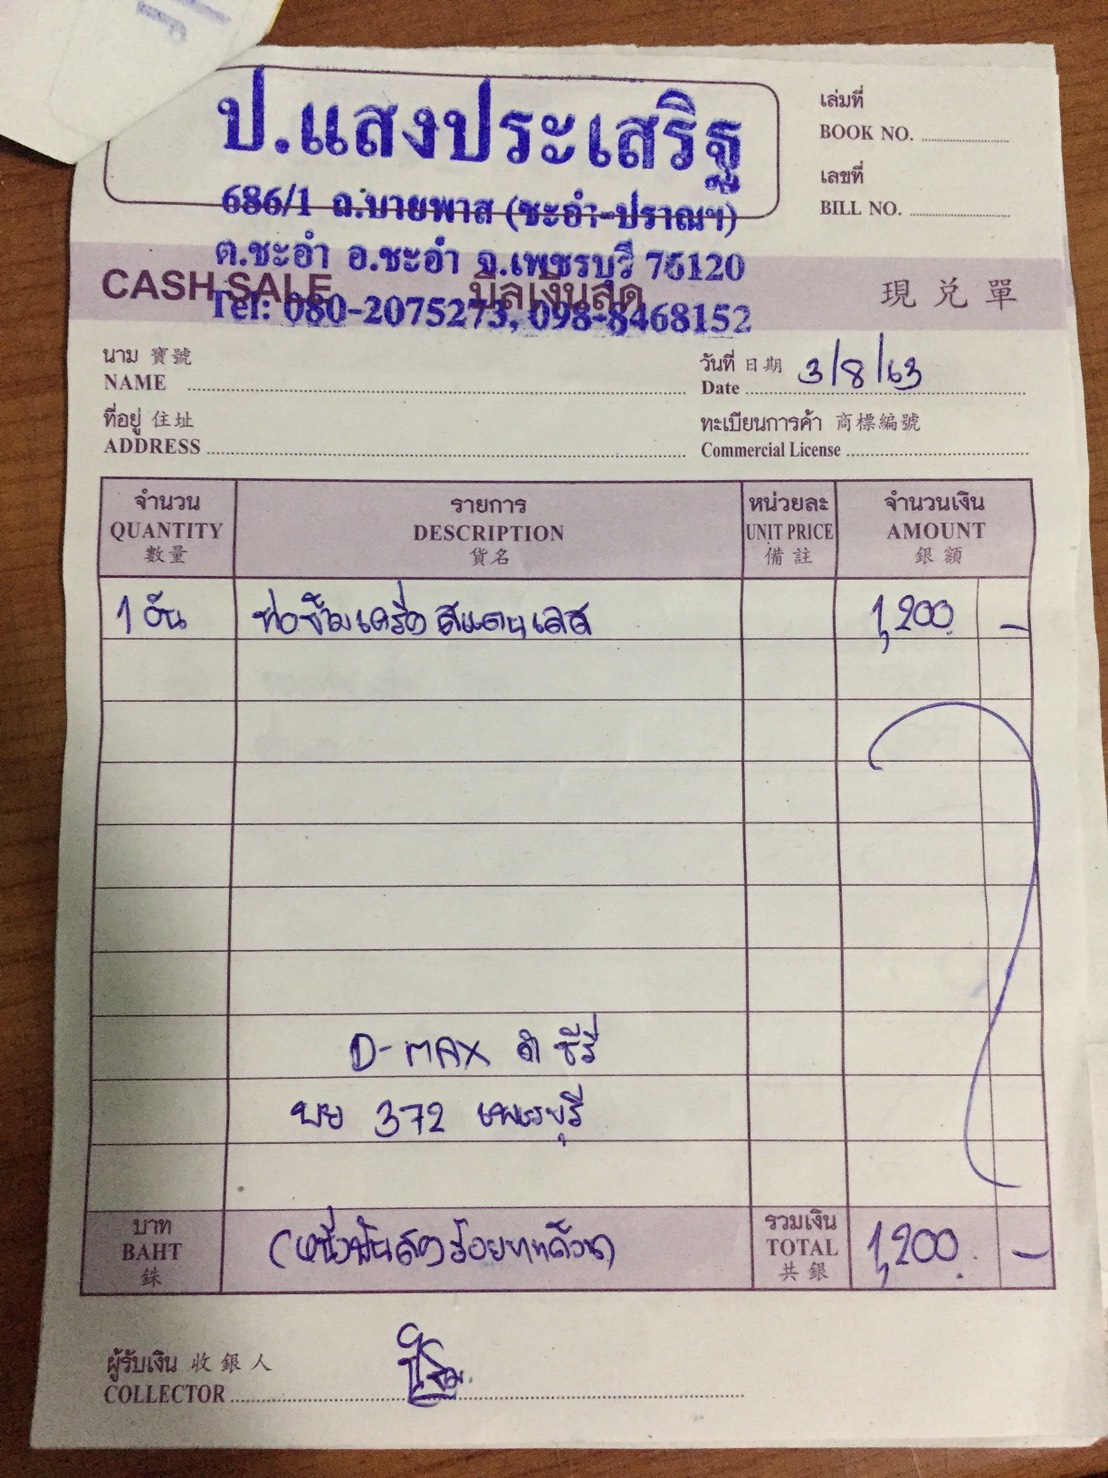 ป.แสงประเสริฐ
686/1 ถ.บายพาส (ชะอำ-ปราณฯ)
ต.ชะอำ อ.ชะอำ จ.เพชรบุรี 76120
Tel: 080-2075273, 098-8468152
เล่มที่
BOOK NO.
เลขที่
BILL NO.
CASH SALE บิลเงินสด 現兌單
นาม 寶號
NAME
วันที่ 日期 3/8/63
Date
ที่อยู่ 住址
ADDRESS
ทะเบียนการค้า 商標編號
Commercial License
จำนวน รายการ หน่วยละ จำนวนเงิน
QUANTITY DESCRIPTION UNIT PRICE AMOUNT
數量 貨名 備註 銀額
1 อัน สแตนเลส 1,200. –
D-MAX
บย 372 เพชรบุรี
บาท
BAHT
銖
(หนึ่งพันสองร้อยบาทถ้วน)
รวมเงิน
TOTAL
共銀
1,200. –
ผู้รับเงิน 收銀人
COLLECTOR